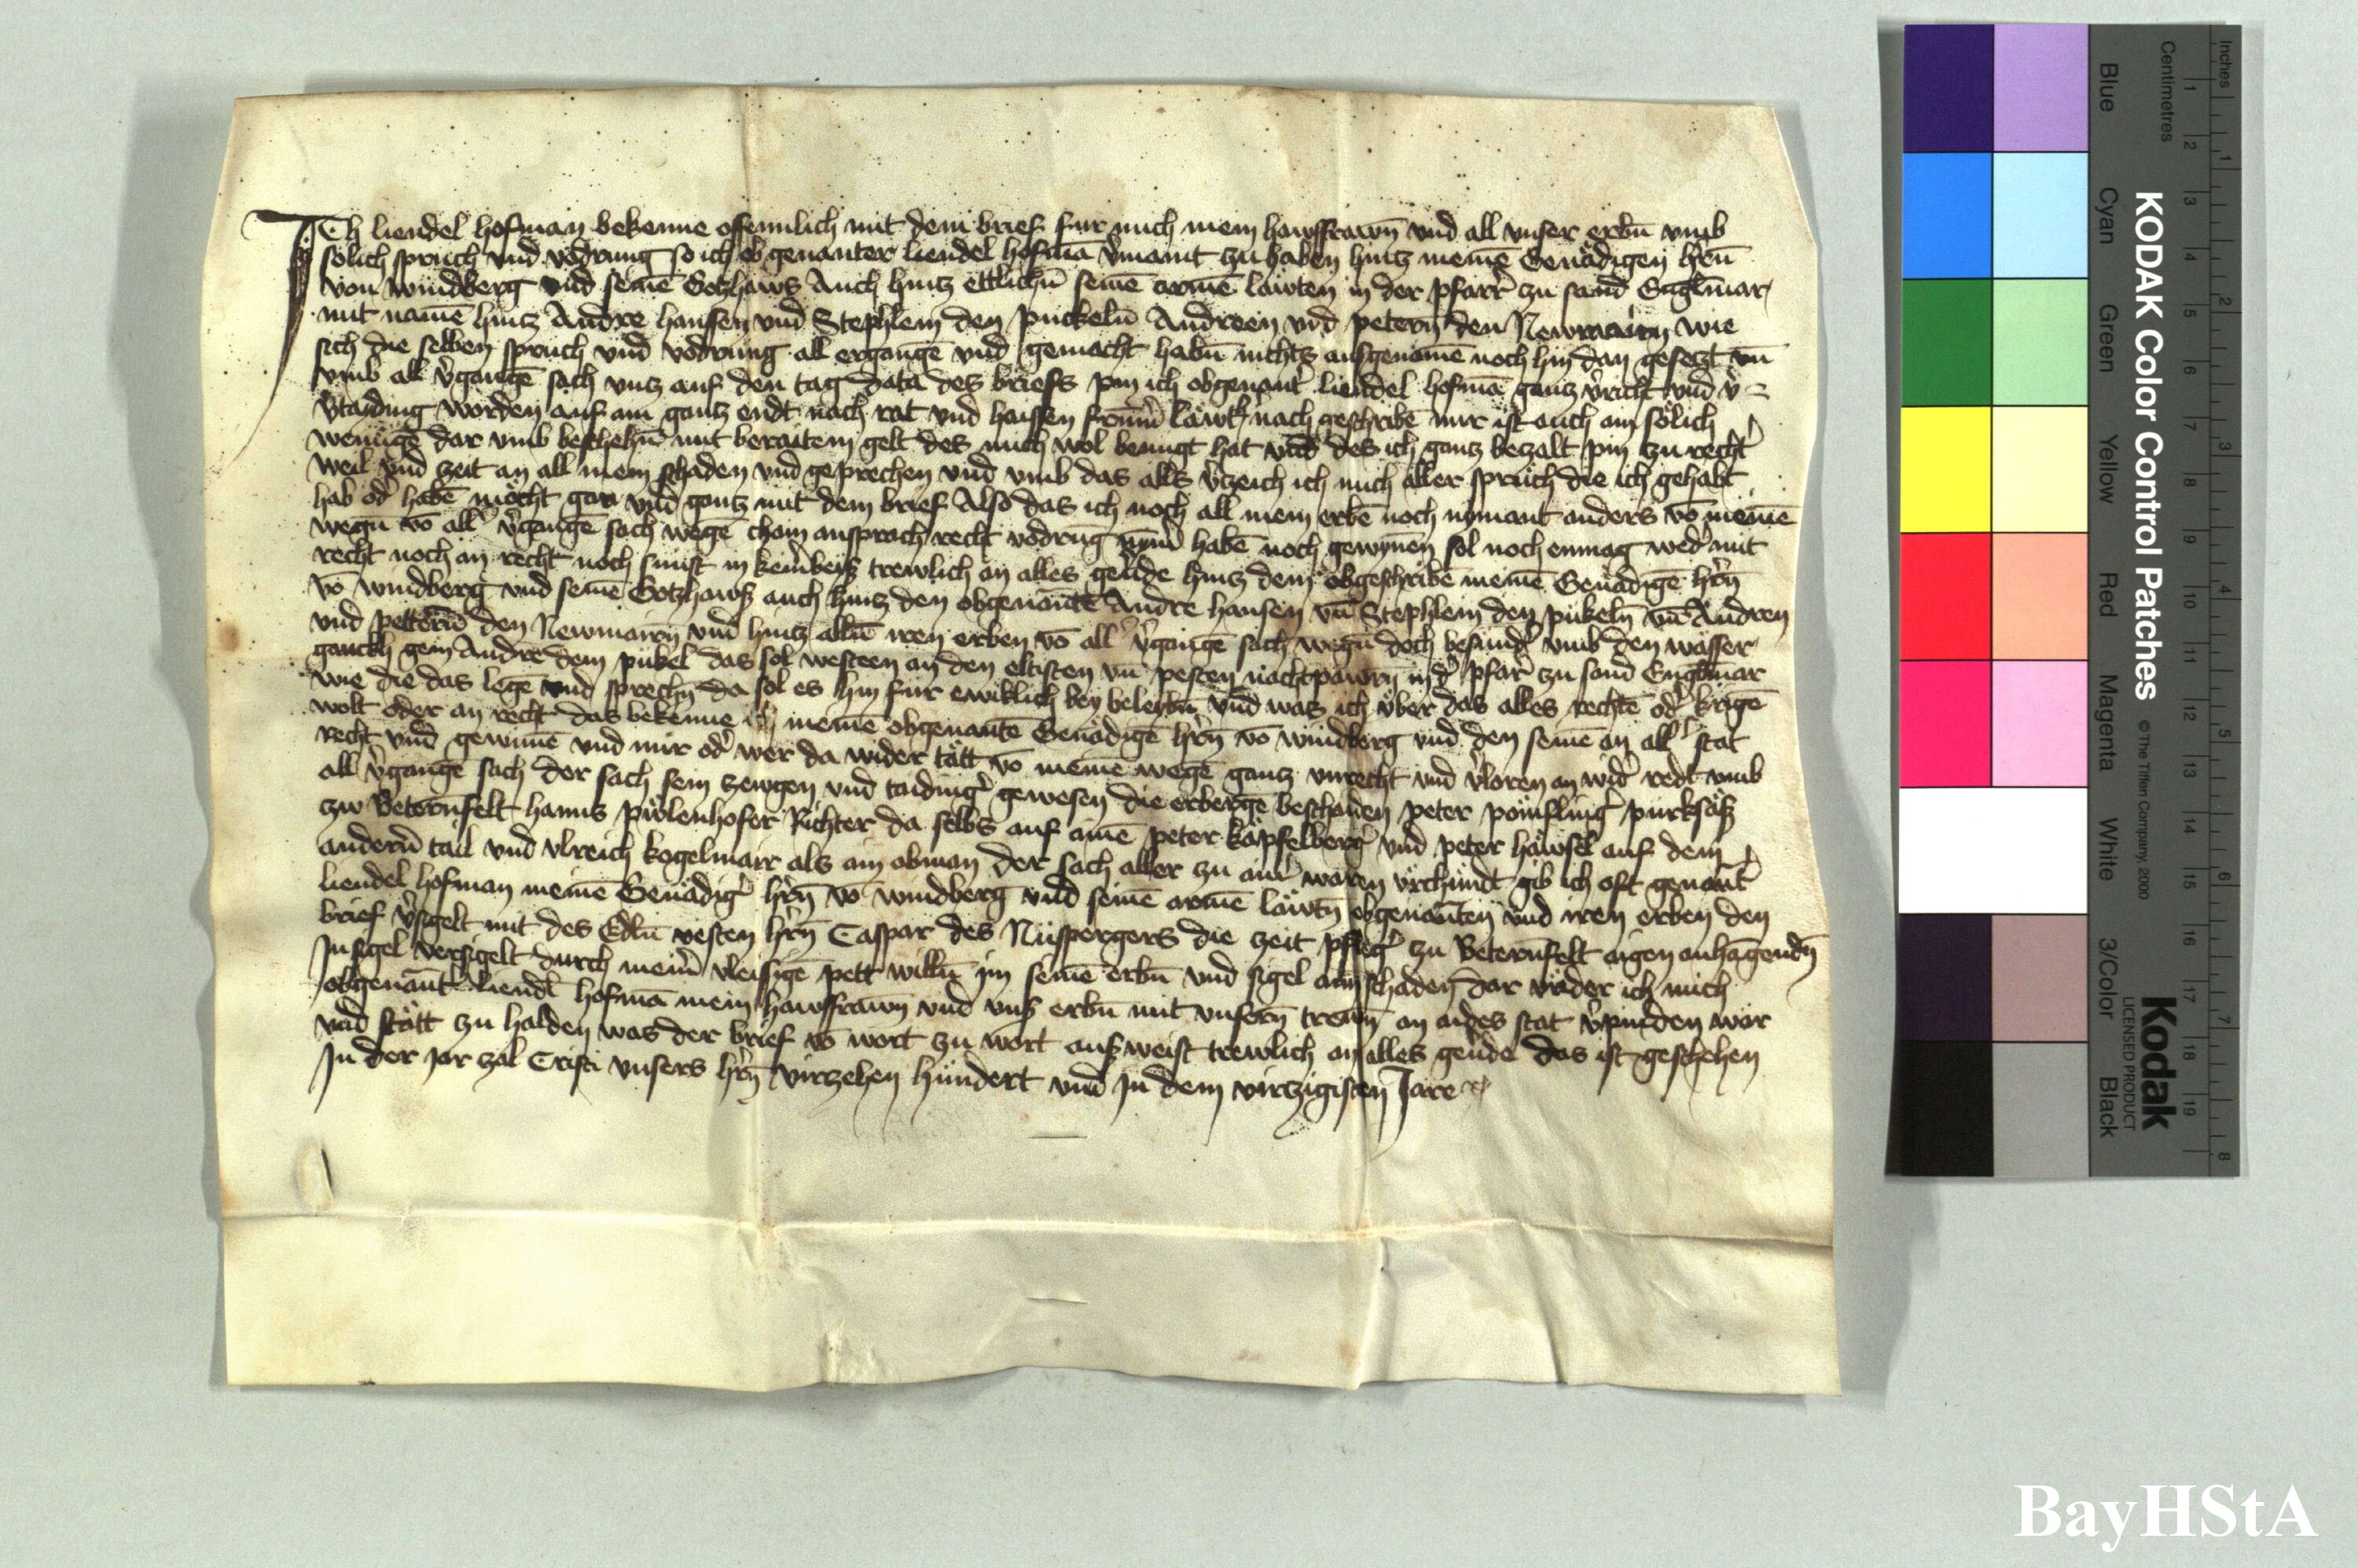 Ich liendel hofman bekenne offennlich mit dem brief fur mich mein hawsfrawn̄ vnd all vnser erbn̄ vmb
sölich spruch vnd vodrung so ich obgenanter liendel hofmā v̓maint zu haben hintz meinē Genädigen hr̄n
von windberg vnd seinē Gotzhaws Auch hintz ettlichn̄ seinē armē läwten in der pfarr zu sand Englmar
mit namē hintz Andre hansen vnd Stephlein den puckeln̄ Andreen vnd petern̄ den Newmairn wie
sich die selben spruch vnd vodrung all ergangē vnd gemacht habn̄ nichtz ausgenomē noch hin dan gesetzt vn̄
vmb all v̓gangē sach vntz auf den tag data des briefs pin ich obgenant̓ liendel hofmā gantz v̓richt vnd v̓=
v̓taiding worden auf ain gantz endt nach rat vnd haissen frumm̓ läwt nach geschribē mir ist auch ain sölich
wenügē dar vmb beschehn̄ mit beraitem gelt des mich wol benugt hat vnd des ich gantz betzalt pin zu recht̓
weil vnd zeit an all mein schaden vnd geprechen vnd vmb das alls v̓tzeich ich mich aller sprüch die ich gehabt
hab od̓ habē möcht gar vnd gantz mit dem brief Also das ich noch all mein erbē noch nymant anders vō meinē
wegn̄ vō all̓ v̓gangē sach wegē chain ansprach recht vodrūg nym̓ habē noch gewynen sol noch enmag wed̓ mit
recht noch an recht noch sunst in kein̓ beiß trewlich an alles geu̓de hintz dem obgeschribē meinē Genädigē hr̄n
vō windberg vnd seinē Gotzhawß auch hintz den obgenantē Andre hansen vn̄ Stephlein den pukeln̄ vn̄ Andren
vnd pettern̄ den Newmairn̄ vnd hintz alln̄ iren erben vō all̓ v̓gangē sach wegn̄ doch besund̓ vmb den wasser
gänckh gein Andre dem pukel das sol westeen an den eltisten vn̄ pesten nachtpawrn̄ in d̓ pfarr̓ zu sand Englmar
wie die das legē vnd sprechn̄ da sol es hin für ewiklich bey beleibn̄ vnd was ich über das alles rechtē od̓ krigē
wolt oder an recht das bekenne ich meinē obgenantē Genädigē hr̄n vō windberg vnd den seinē an all̓ stat
recht vnd gewunē vnd mir od̓ wer da wider tätt vō meinē wegē gantz vnrecht vnd v̓loren an wid̓ redt vmb
all v̓gangē sach der sach sein zewgen vnd taiding̓ gewesen die erbergē beschaiden peter pömfling̓ purksäß
zw Beternfelt hanns pirlenhofer Richter da selbs auf ainē peter käpfelberg̓ vnd peter häwsel auf dem
andern̄ tail vnd vlreich kogelmair als ain obman der sach aller zu ain̓ waren vrchundt gib ich oft genant̓
liendel hofman meinē Genädig̓ hr̄n vō windberg vnd seinē armē läwtn̄ obgenanten vnd iren erben den
brief v̓sigelt mit des Edln̄ vesten hr̄n Caspar des Nüspergers die zeit pfleg̓ zu Beternfelt aigen anhāgendn̄
Insigel versigelt durch mein̓ vleisigē pett willn̄ im seinē erbn̄ vnd sigel ann schaden dar vnder ich mich
obgenant̓ liendl hofmā mein hawsfrawn vnd vnß erbn̄ mit vnsern̄ trewn̄ an aides stat v̓pinden war
vnd stätt zu halden was der brief vō wort zu wort außweist trewlich an alles geu̓de das ist geschehen
In der Jar zal Cristi vnsers hr̄n virzehen hundert vnd In dem virtzigisten Jare
Inches
Centimetres
1 2 3 4 5 6 7 8
1 2 3 4 5 6 7 8 9 10 11 12 13 14 15 16 17 18 19
KODAK Color Control Patches
©The Tiffen Company, 2000
Kodak
LICENSED PRODUCT
Blue
Cyan
Green
Yellow
Red
Magenta
White
3/Color
Black
BayHStA